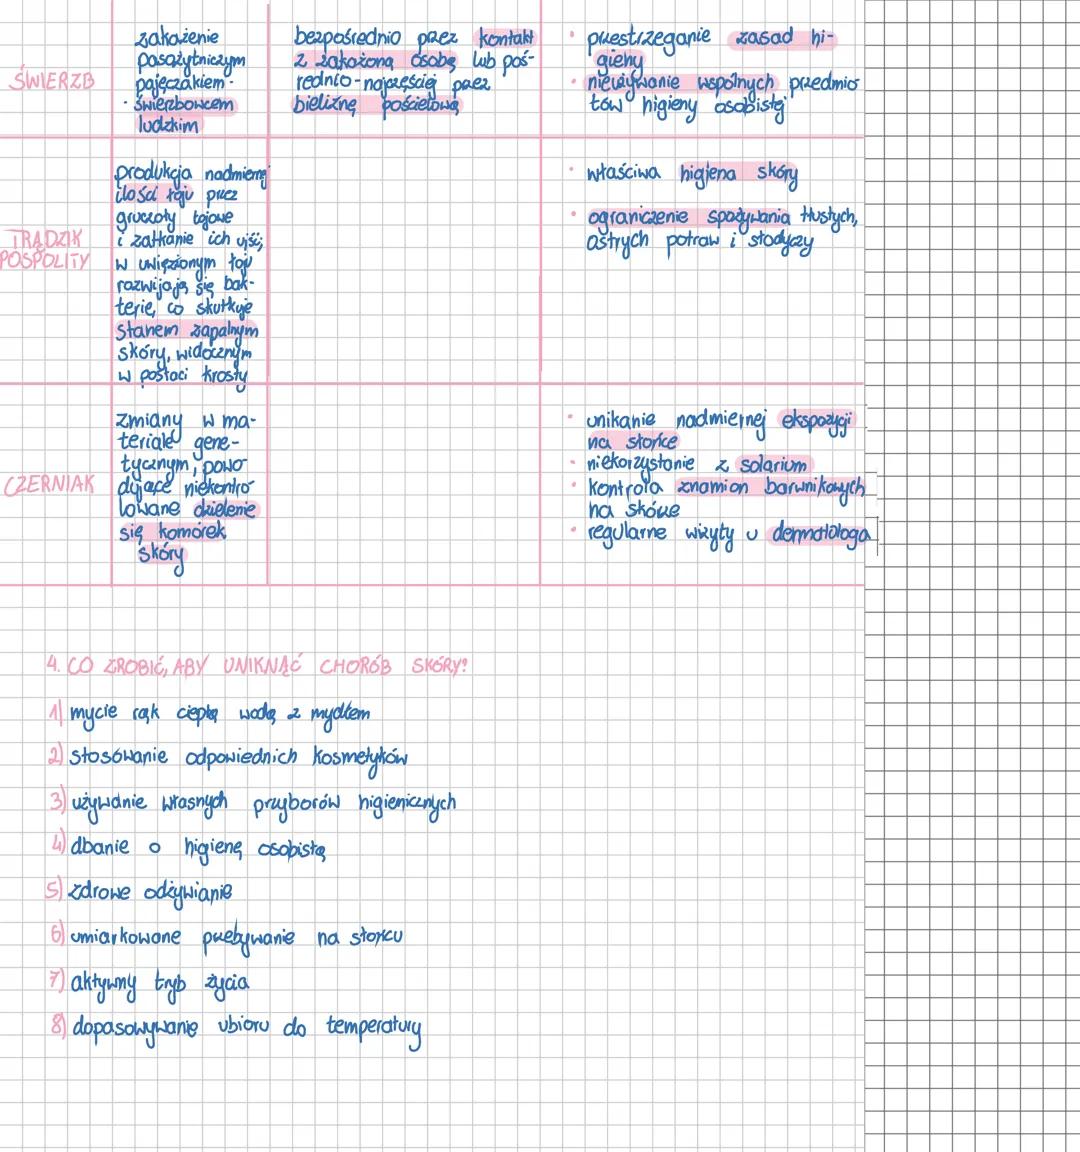 ŚWIERZB
zakażenie
pasożytniczym
pajęczakiem -
świerzbowcem
ludzkim
bezpośrednio przez kontakt
z zakażoną osobą lub poś-
rednio - najczęściej przez
bieliznę pościelową
• przestrzeganie zasad hi-
gieny
• nieużywanie wspólnych przedmio
tów higieny osobistej
TRĄDZIK
POSPOLITY
produkcja nadmiernej
ilości łoju przez
gruczoły łojowe
i zatkanie ich ujść;
w uwięzionym łoju
rozwijają się bak-
terie, co skutkuje
stanem zapalnym
skóry, widocznym
w postaci krosty
• właściwa higiena skóry
• ograniczenie spożywania tłustych,
ostrych potraw i słodyczy
CZERNIAK
zmiany w ma-
teriale gene-
tycznym, powo-
dujące niekontro-
lowane dzielenie
się komórek
skóry
• unikanie nadmiernej ekspozycji
na słońce
• niekorzystanie z solarium
• kontrola znamion barwnikowych
na skórze
• regularne wizyty u dermatologa
4. CO ZROBIĆ, ABY UNIKNĄĆ CHORÓB SKÓRY?
1) mycie rąk ciepłą wodą z mydłem
2) stosowanie odpowiednich kosmetyków
3) używanie własnych przyborów higienicznych
4) dbanie o higienę osobistą
5) zdrowe odżywianie
6) umiarkowane przebywanie na słońcu
7) aktywny tryb życia
8) dopasowywanie ubioru do temperatury